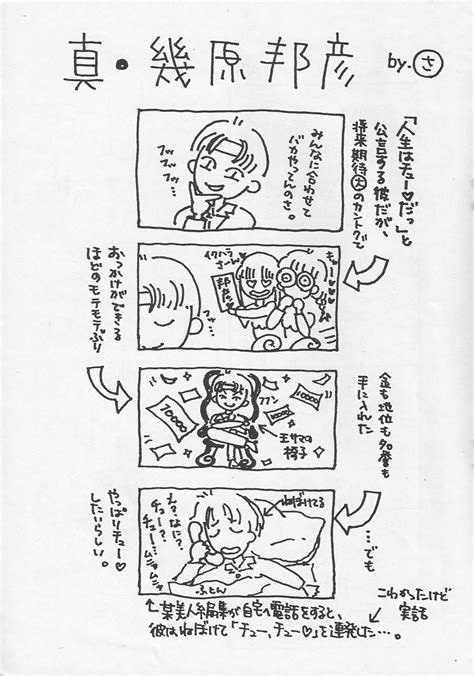 真・幾原邦彦
by.さ
「人生はチュー♡だっ」と
公言する彼だが、
将来期待大のカントクで
みんなに合わせて
バカやってんのさ。
フッ
フッフッ…
おっかけができる
ほどのモテモテぶり
イクハラ
さーん♡
邦彦
フッ…
金も地位も名誉も
手に入れた
フフン
10000
10000
10000
王サマの
椅子
…でも
やっぱりチュー♡
したいらしい。
え?なに?
チュー?
チュー…
ムニャムニャ
ねぼけてる
ふとん
某美人編集が自宅へ電話をすると、
彼はねぼけて「チュー、チュー♡」を連発した…。
こわかったけど
実話